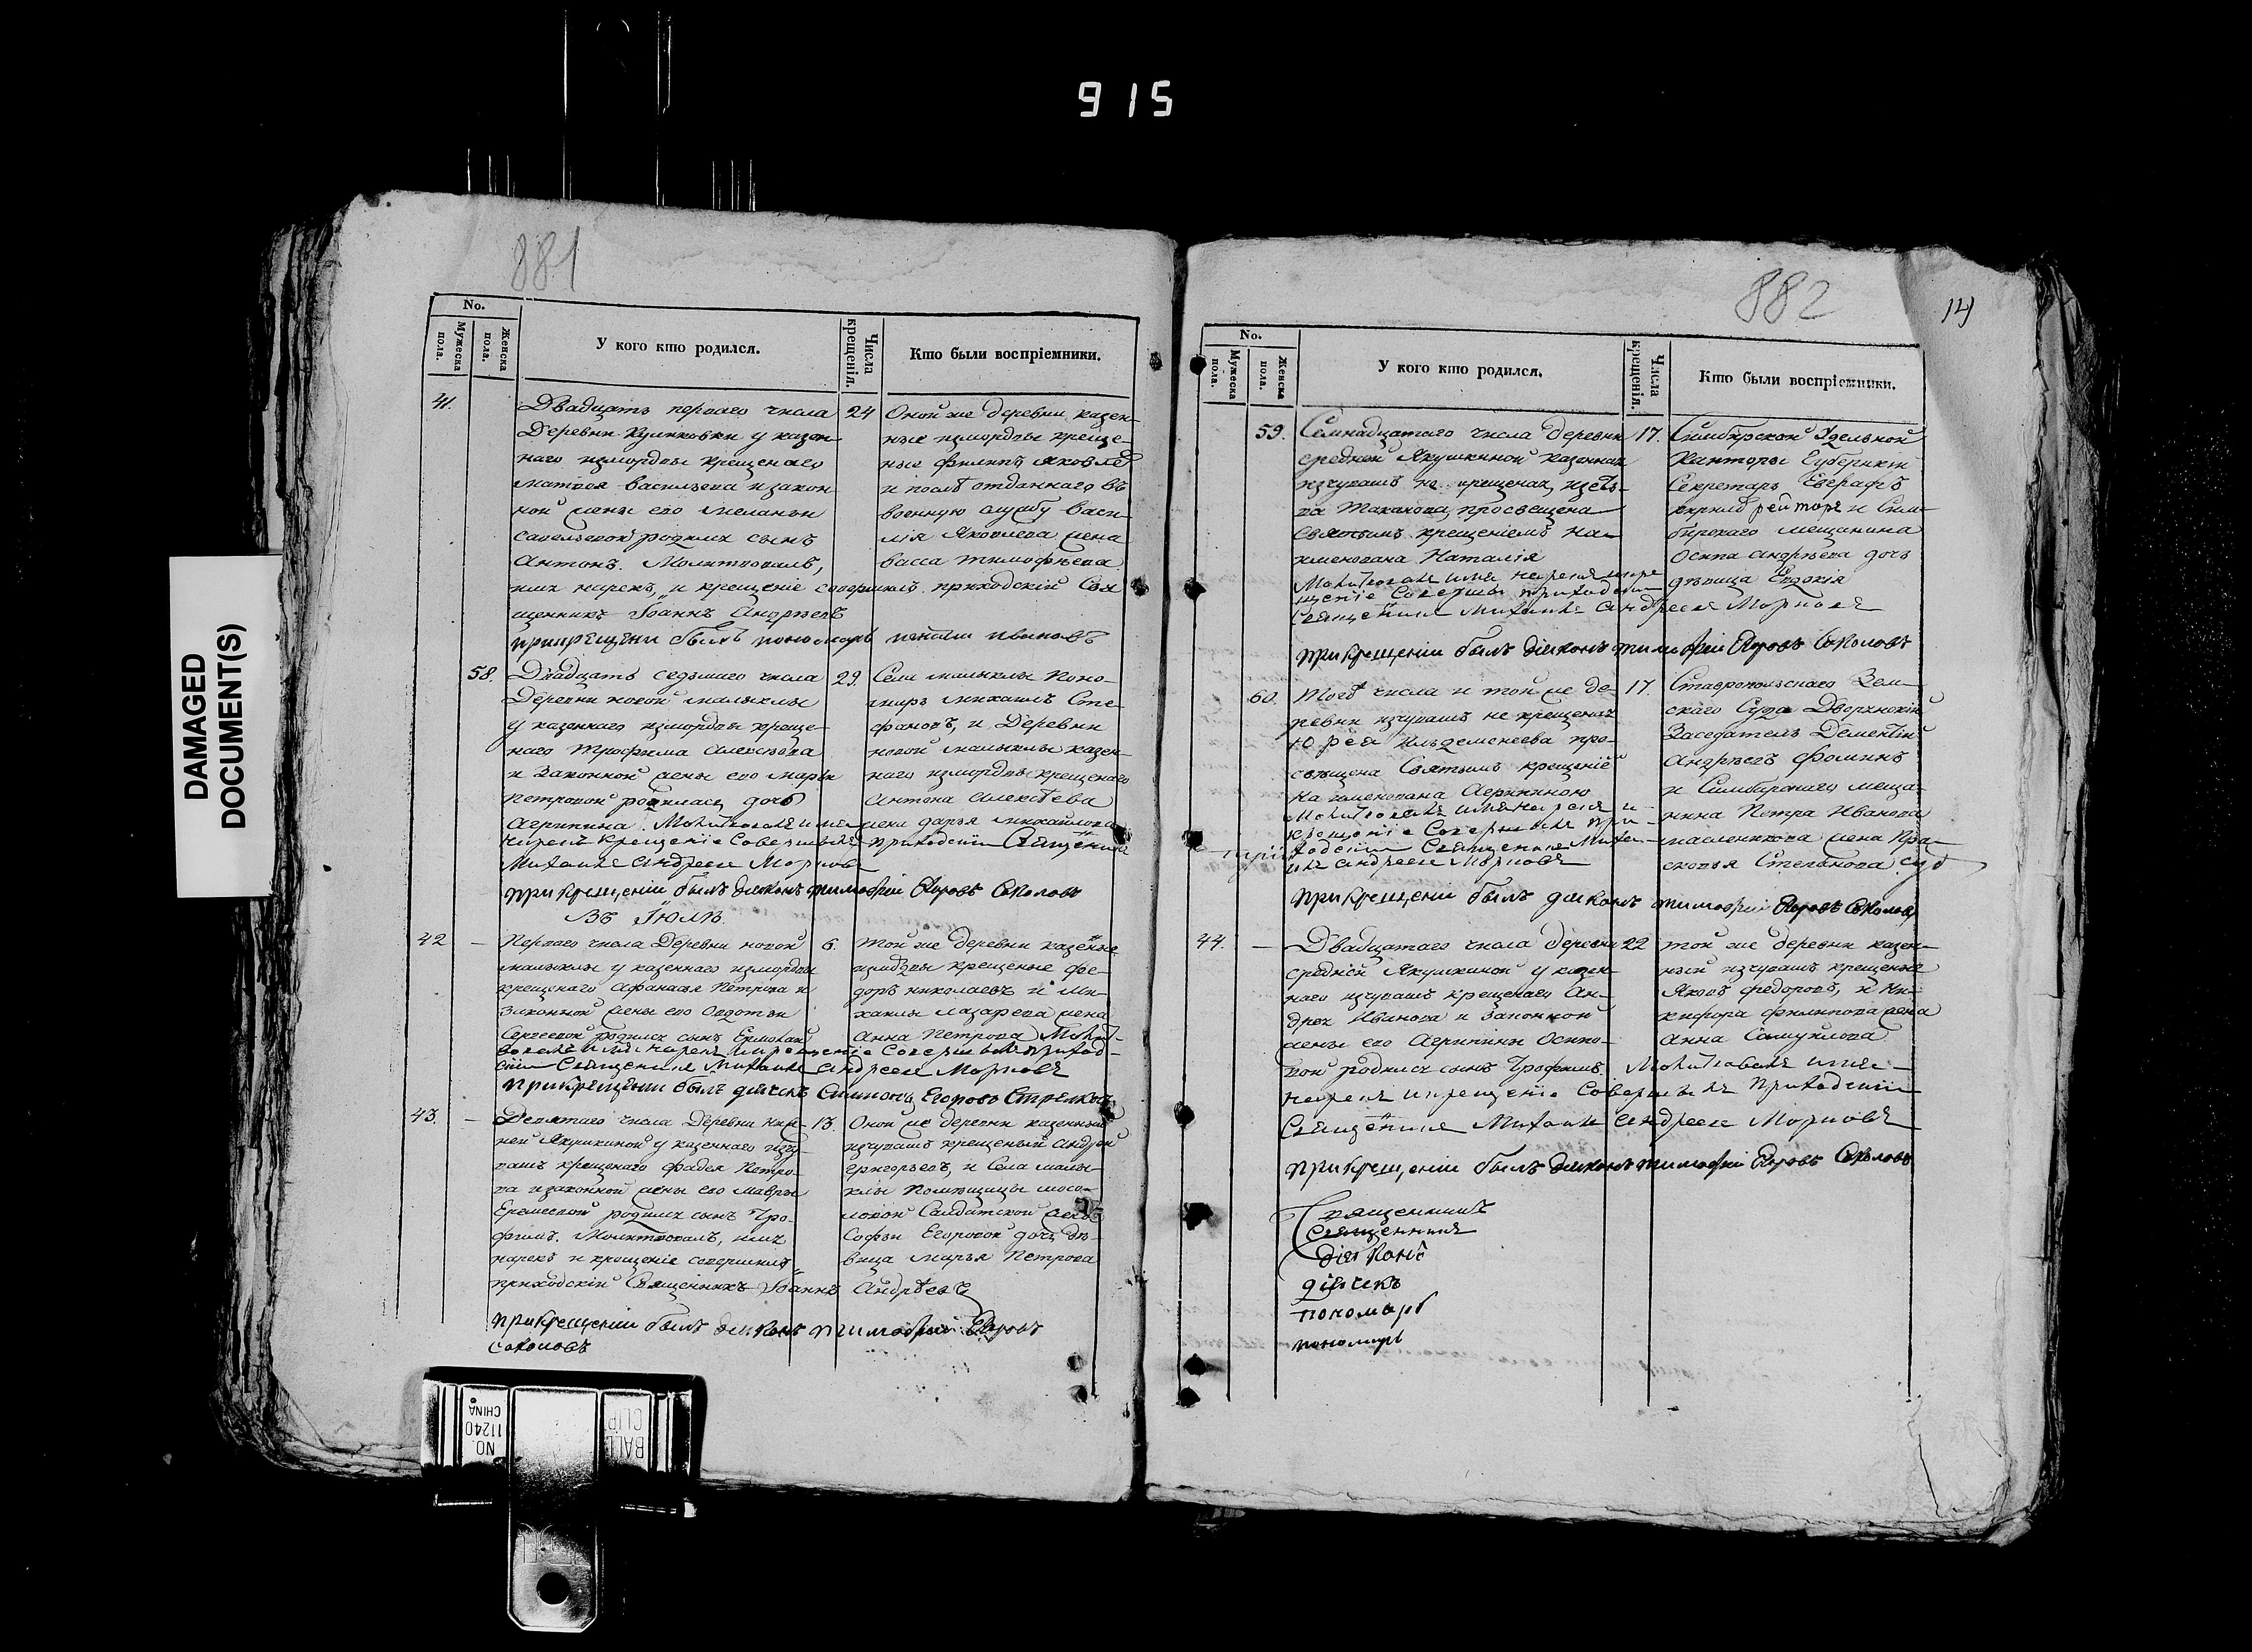 915
DAMAGED
DOCUMENT(S)
881
No.
Мужеска пола.
Женска пола.
У кого кто родился.
Числа крещенія.
Кто были воспріемники.
41.
Двадцать перваго числа
Деревни Куликовки у казен-
наго измордвы крещенаго
матвея васильева и закон
ной жены его меланьи
савельевой родился сынъ
Антонъ. Молитвовалъ,
имя нарекъ, и крещеніе совершилъ приходскій Свя
щенникъ Іоаннъ Андреевъ
24
Оной же деревни казен-
ные измордвы креще-
ные филипъ яковле
и послѣ отданнаго въ
военную службу Васи-
лія Яковлева жена
васса тимофѣева
при крещени былъ пономарь ивановъ
58.
Двадцать седьмаго числа
Деревни новой малыклы
у казеннаго измордвы креще-
наго Трофима Алексѣева
и Законной жены его марьи
петровой родилась дочь
Агрипина. Молитвовалъ имя
нарекъ крещеніе Совершилъ приходскій Священникъ
Михаилъ Андреевъ
29.
Села малыклы Поно-
марь михаилъ Сте-
фановъ, и Деревни
новой малыклы казен-
наго измордвы крещенаго
Антона Алексѣева
жена дарья михайлова
при крещеніи былъ дьяконъ тимофей Егоровъ Соколовъ
Въ Іюлѣ.
42
Перваго числа Деревни новой
малыклы у казеннаго измордвы
крещенаго Афанасья Петрова и
Законной жены его Авдотьи
Сергеевой родился сынъ Ермолай
6.
той же деревни казенные
измордвы крещеные фе-
доръ николаевъ и Ми-
хаилы лазарева жена
Анна Петрова Молит-
вовалъ имя нарекъ и крещеніе Совершилъ приход-
скій Священникъ Михаилъ Андреевъ
при крещении былъ дьячекъ Симионъ Егоровъ Стрелковъ
43.
Девятаго числа Деревни Ниж-
ней Якушкиной у казеннаго изчу-
вашъ крещенаго фадея Петро-
ва и законной жены его мавры
Еремеевой родился сынъ Тро-
фимъ. Молитвовалъ, имя
нарекъ и крещеніе совершилъ
приходскій Священникъ Іоаннъ Андреевъ
13.
Оной же деревни казенный
изчувашъ крещеный Андрей
григорьевъ, и Села малы-
клы Помѣщицы мосо-
ловой Солдатской жены
Софьи Егоровой дочь дѣ-
вица марья Петрова
при крещеніи былъ дьяконъ тимофей Егоровъ
соколовъ
NO.
11240
CHINA
BALL
CLIP
882
14
No.
Мужеска пола.
Женска пола.
У кого кто родился.
Числа крещенія.
Кто были воспріемники.
59.
Семнадцатаго числа деревни
средней Якушкиной казенная
изчувашъ не крещеная
просвещена
Святымъ крещеніемъ на-
именована Наталія
Молитвовалъ имя нарекъ и кре
щеніе Соверши приходскій
Священникъ Михаилъ Андреевъ
17.
Симбирской Удельной
Канторы Губернскій
Секретарь Евграфъ
и Сим-
бирскаго мещанина
Осипа Андрѣева дочь
дѣвица Евдокія
при крещеніи былъ дьяконъ тимофей Егоровъ Соколовъ
60.
Того числа и той же де-
ревни изчувашъ не крещеная
про-
свѣщена Святымъ крещеніе
на именована Агрипиною
Молитвовалъ имя нарекъ и
крещеніе Совершилъ при-
ходскій Священникъ Миха-
илъ Андреевъ
17.
Ставропольскаго Зем-
скаго Суда Дворянскій
Заседатель Дементій
Андрѣевъ Фоминъ
и Симбирскаго меща-
нина Петра Иванова
масленкова жена Пра-
сковья Степанова
при крещеніи былъ дьяконъ тимофей Егоровъ Соколовъ
44.
Двадцатаго числа деревни
средней Якушкиной у казен-
наго изчувашъ крещенаго Ан-
дрея Иванова и Законной
жены его Агрипины Осипо-
вой родился сынъ Трофимъ. Молитвовалъ имя
нарекъ и крещеніе Совершилъ Приходскій
Священникъ Михаилъ Андреевъ
22
той же деревни казен-
ный изчувашъ крещеные
Яковъ федоровъ, и Ни-
кифора филипова жена
Анна Самуйлова
при крещеніи былъ дьяконъ тимофей Егоровъ Соколовъ
Священникъ
Священникъ
діяконъ
дьячекъ
пономарь
пономарь